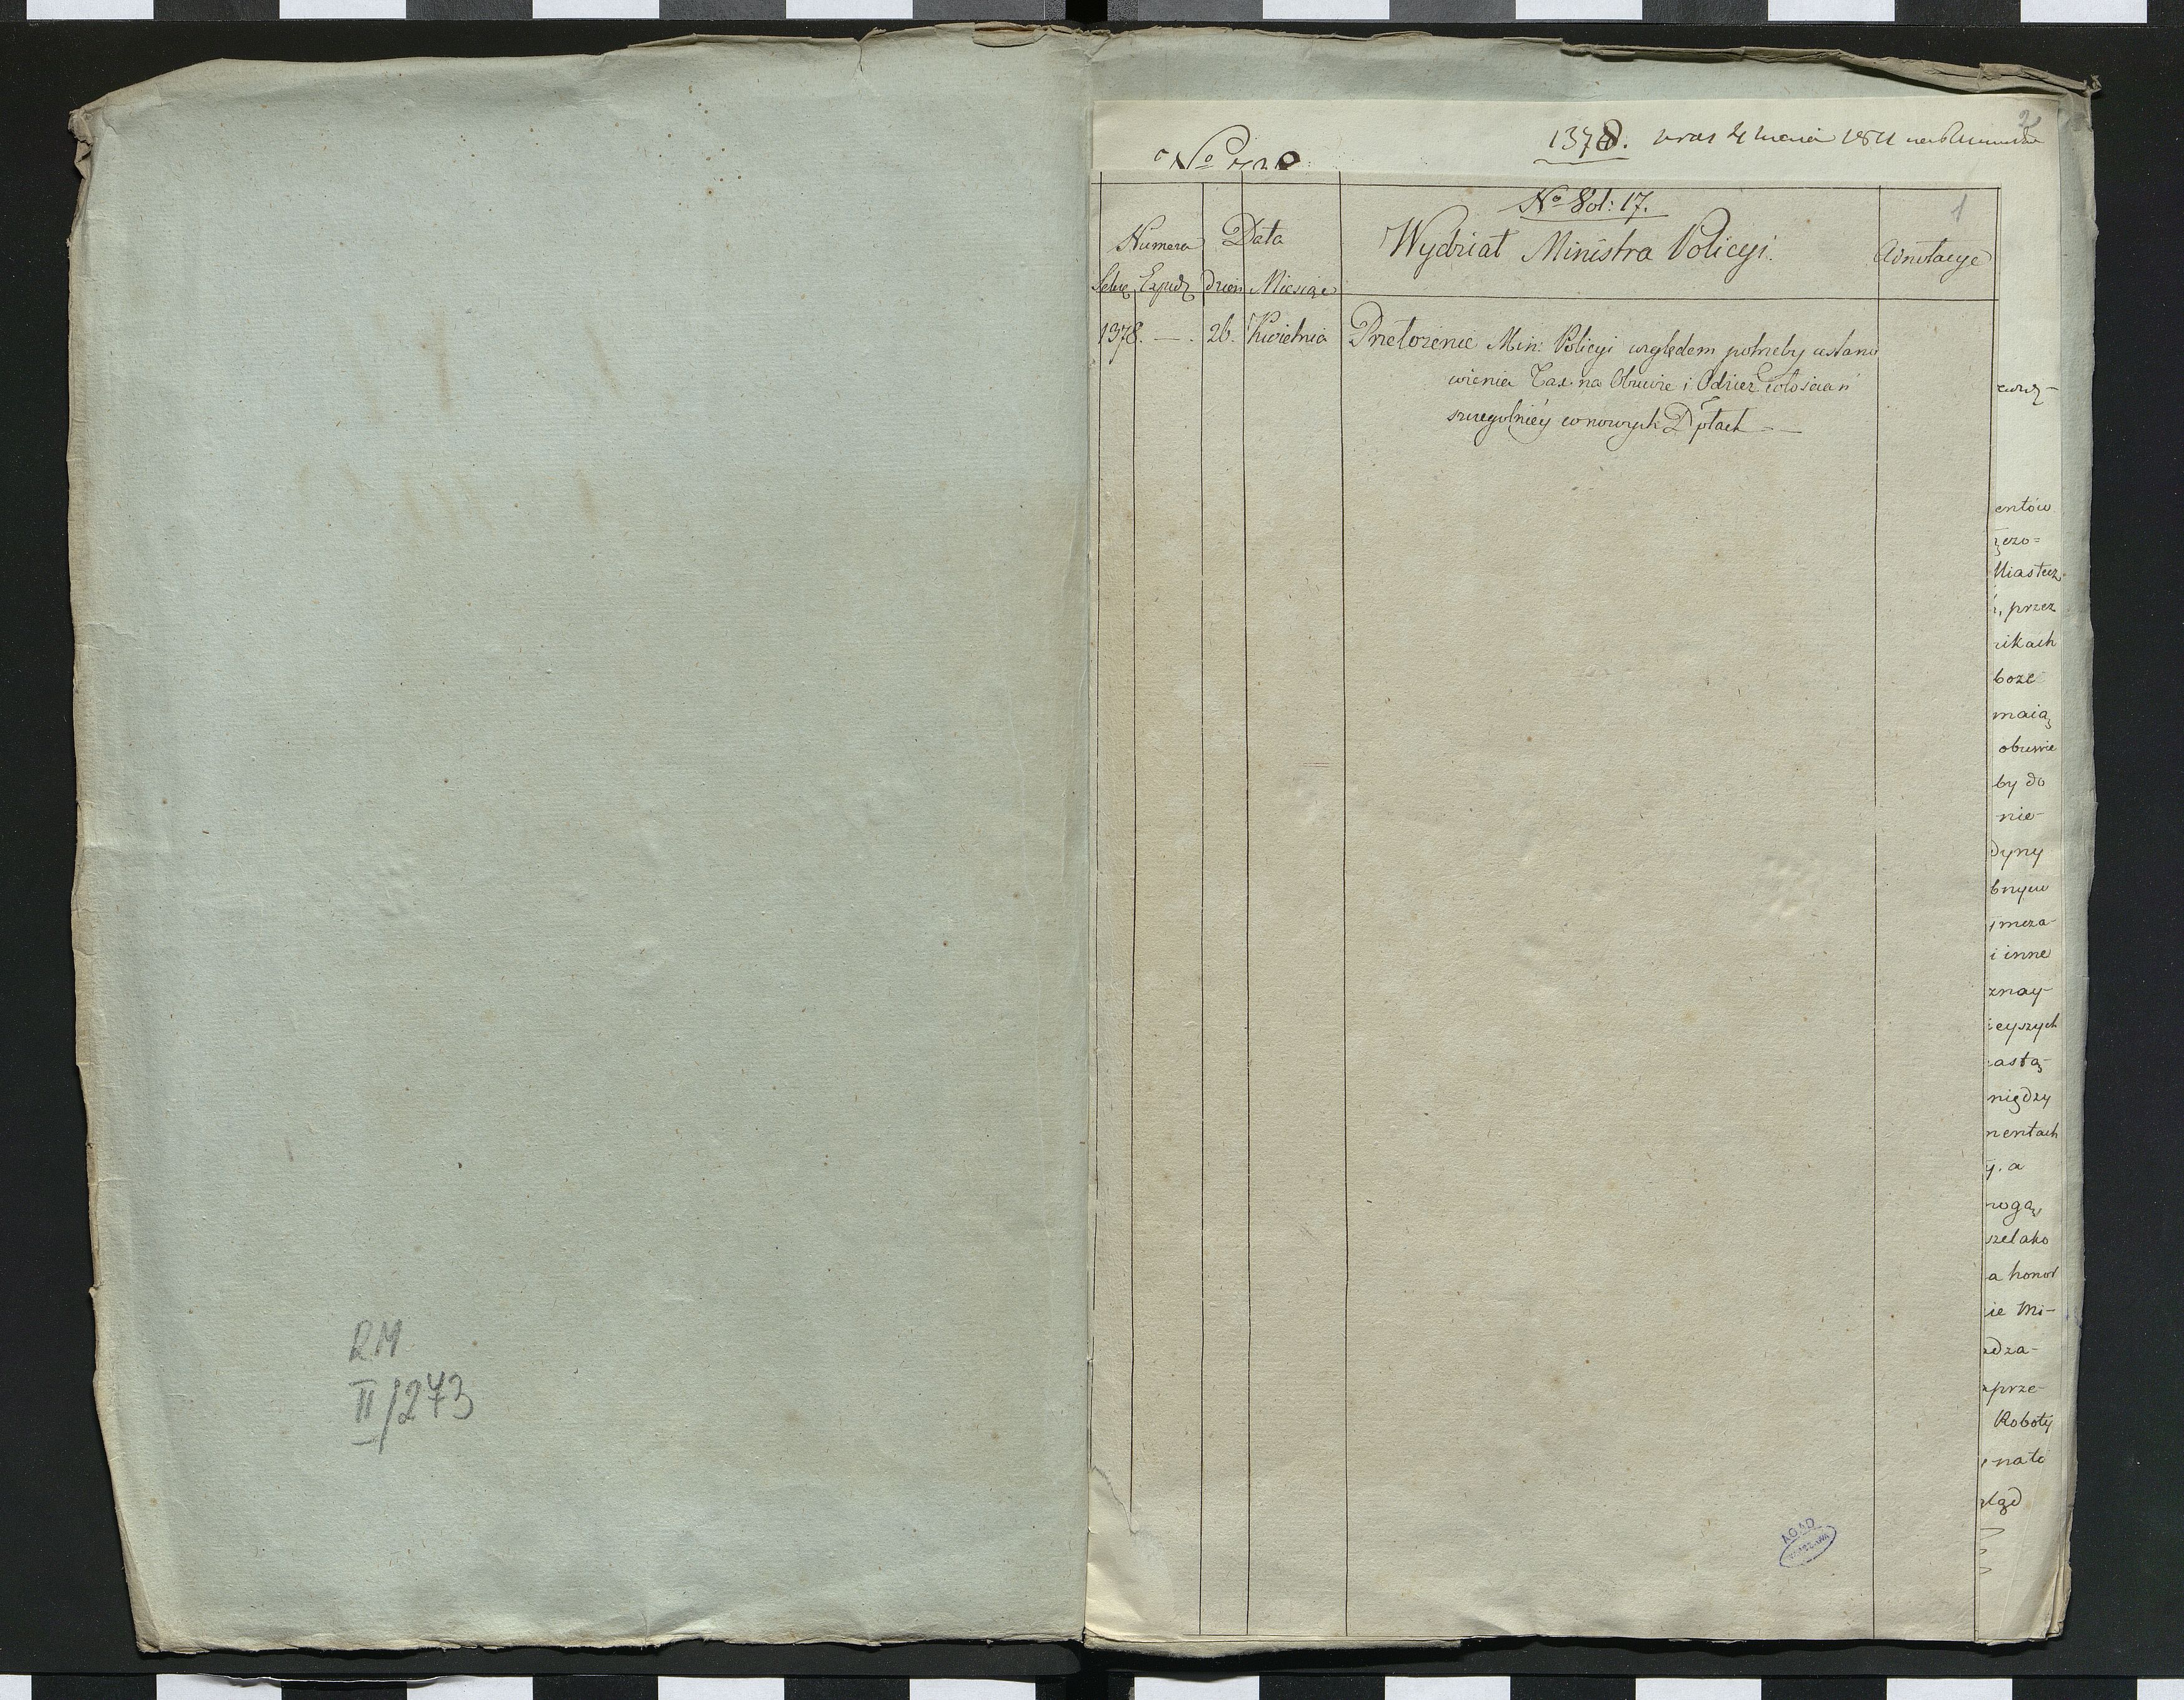 RM
II/273
2
1378.
No
No Vol: 17.
1
Numera Data Wydział Ministra Policyi. Adnotacye
Exped dzień Miesiąc
1378. — . 26. Kwietnia Przełożenie Min: Policyi względem potrzeby ustano
wienia Tax na Obuwie i Odzież włościan
szczególniéy w nowych Dptach —
entów
Miastecz
, przez
ikach
boże
maią
obuwie
by do
nie-
dyny
i inne
znay-
eyszych
astą-
między
mentach
y. a
mogą
szelako
a honor
ie Mi-
adza-
prze-
Roboty
nato
AGAD
WARSZAWA